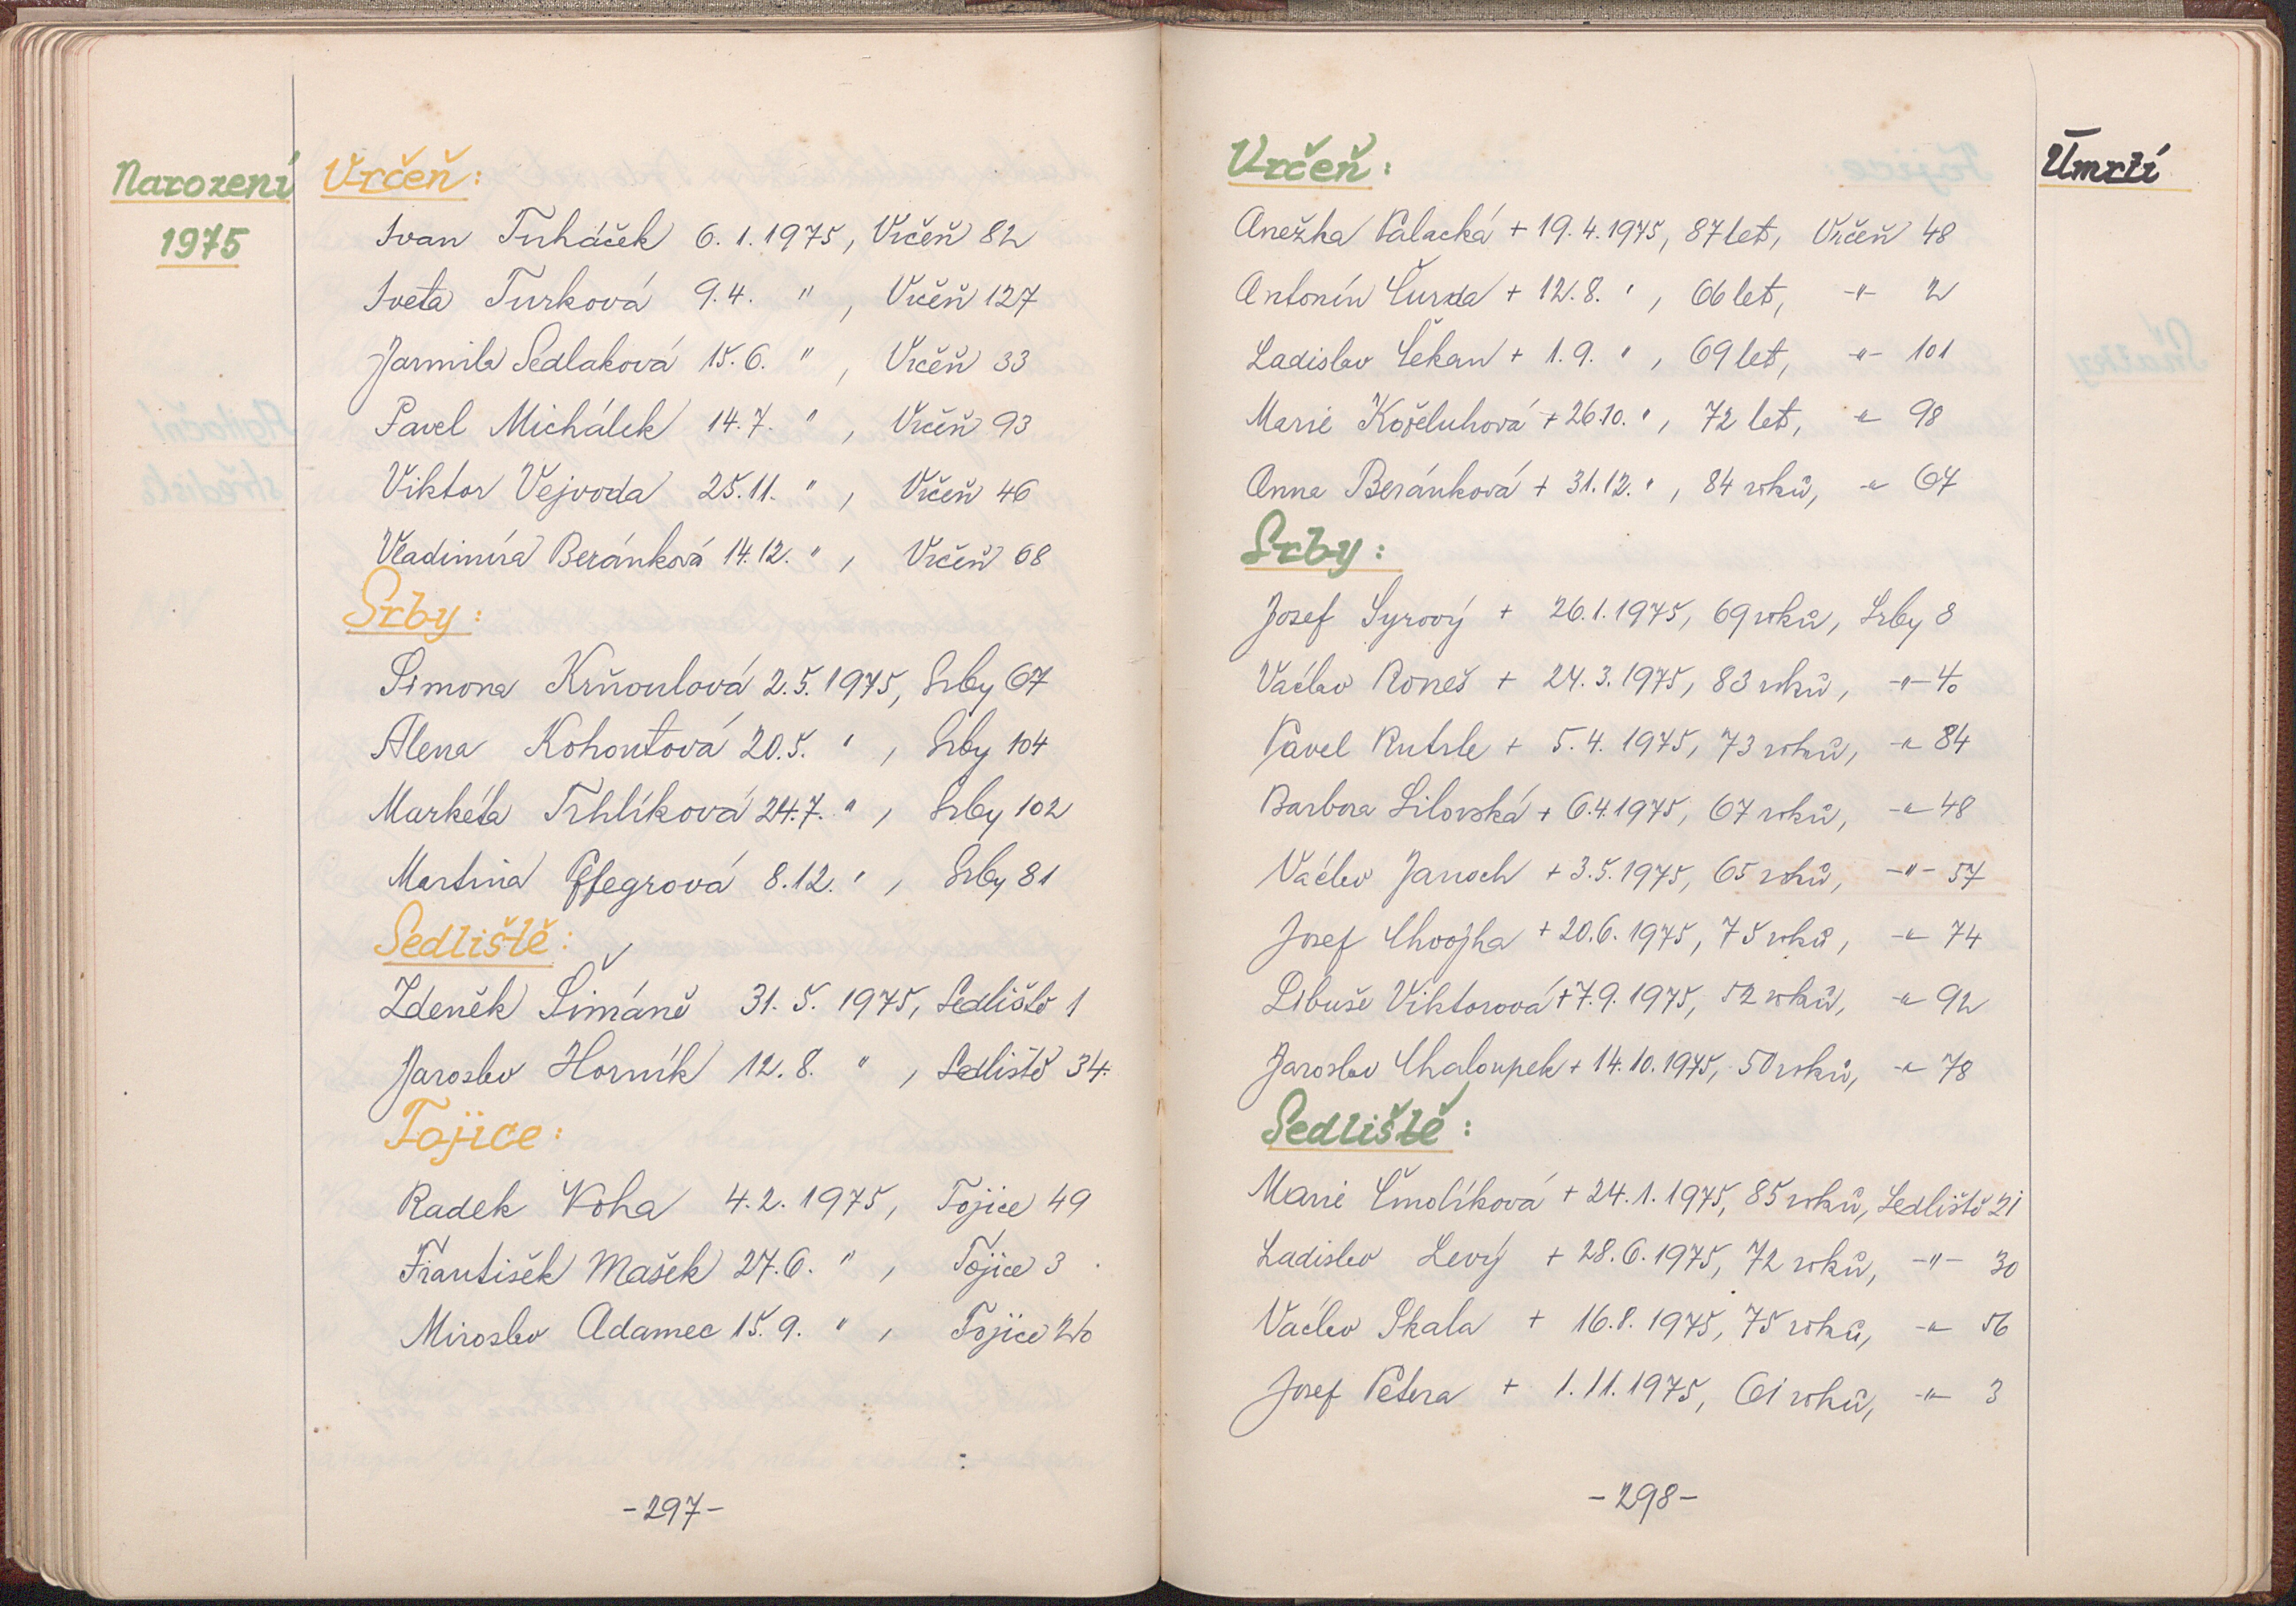 Narození
1975
Vrčeň:
Ivan Tuháček 6.1.1975, Vrčeň 82
Iveta Turková 9.4. " , Vrčeň 127
Jarmila Sedlaková 15.6. " , Vrčeň 33
Pavel Michálek 14.7. " , Vrčeň 93
Viktor Vejvoda 25.11. " , Vrčeň 46
Vladimíra Beránková 14.12. " , Vrčeň 68
Srby:
Simona Krňoulová 2.5.1975, Srby 67
Alena Kohoutová 20.5. " , Srby 104
Markéta Trhlíková 24.7. " , Srby 102
Martina Pflegrová 8.12. " , Srby 81
Sedliště:
Zdeněk Šimáně 31.5.1975, Sedliště 1
Jaroslav Horník 12.8. " , Sedliště 34.
Tojice:
Radek Voha 4.2.1975, Tojice 49
František Mašek 27.6. " , Tojice 3
Miroslav Adamec 15.9. " , Tojice
-297-
Úmrtí
Vrčeň:
Anežka Palacká + 19.4.1975, 87 let, Vrčeň 48
Antonín Čurda + 12.8. " , 66 let, -"- 2
Ladislav Čekan + 1.9. " , 69 let, -"- 101
Marie Kořeluhová + 26.10. " , 72 let, -"- 98
Anna Beránková + 31.12. " , 84 roků, -"- 67
Srby:
Josef Syrový + 26.1.1975, 69 roků, Srby 8
Václav Roneš + 24.3.1975, 83 roků, -"- 40
Pavel Rutrle + 5.4.1975, 73 roků, -"- 84
Barbora Silovská + 6.4.1975, 67 roků, -"- 48
Václav Janoch + 3.5.1975, 65 roků, -"- 57
Josef Chvojka + 20.6.1975, 75 roků, -"- 74
Libuše Viktorová + 7.9.1975, 52 roků, -"- 92
Jaroslav Chaloupek + 14.10.1975, 50 roků, -"- 78
Sedliště:
Marie Čmolíková + 24.1.1975, 85 roků, Sedliště 21
Ladislav Levý + 28.6.1975, 72 roků, -"- 30
Václav Skala + 16.8.1975, 75 roků, -"- 56
Josef Petera + 1.11.1975, 61 roků, -"- 3
-298-